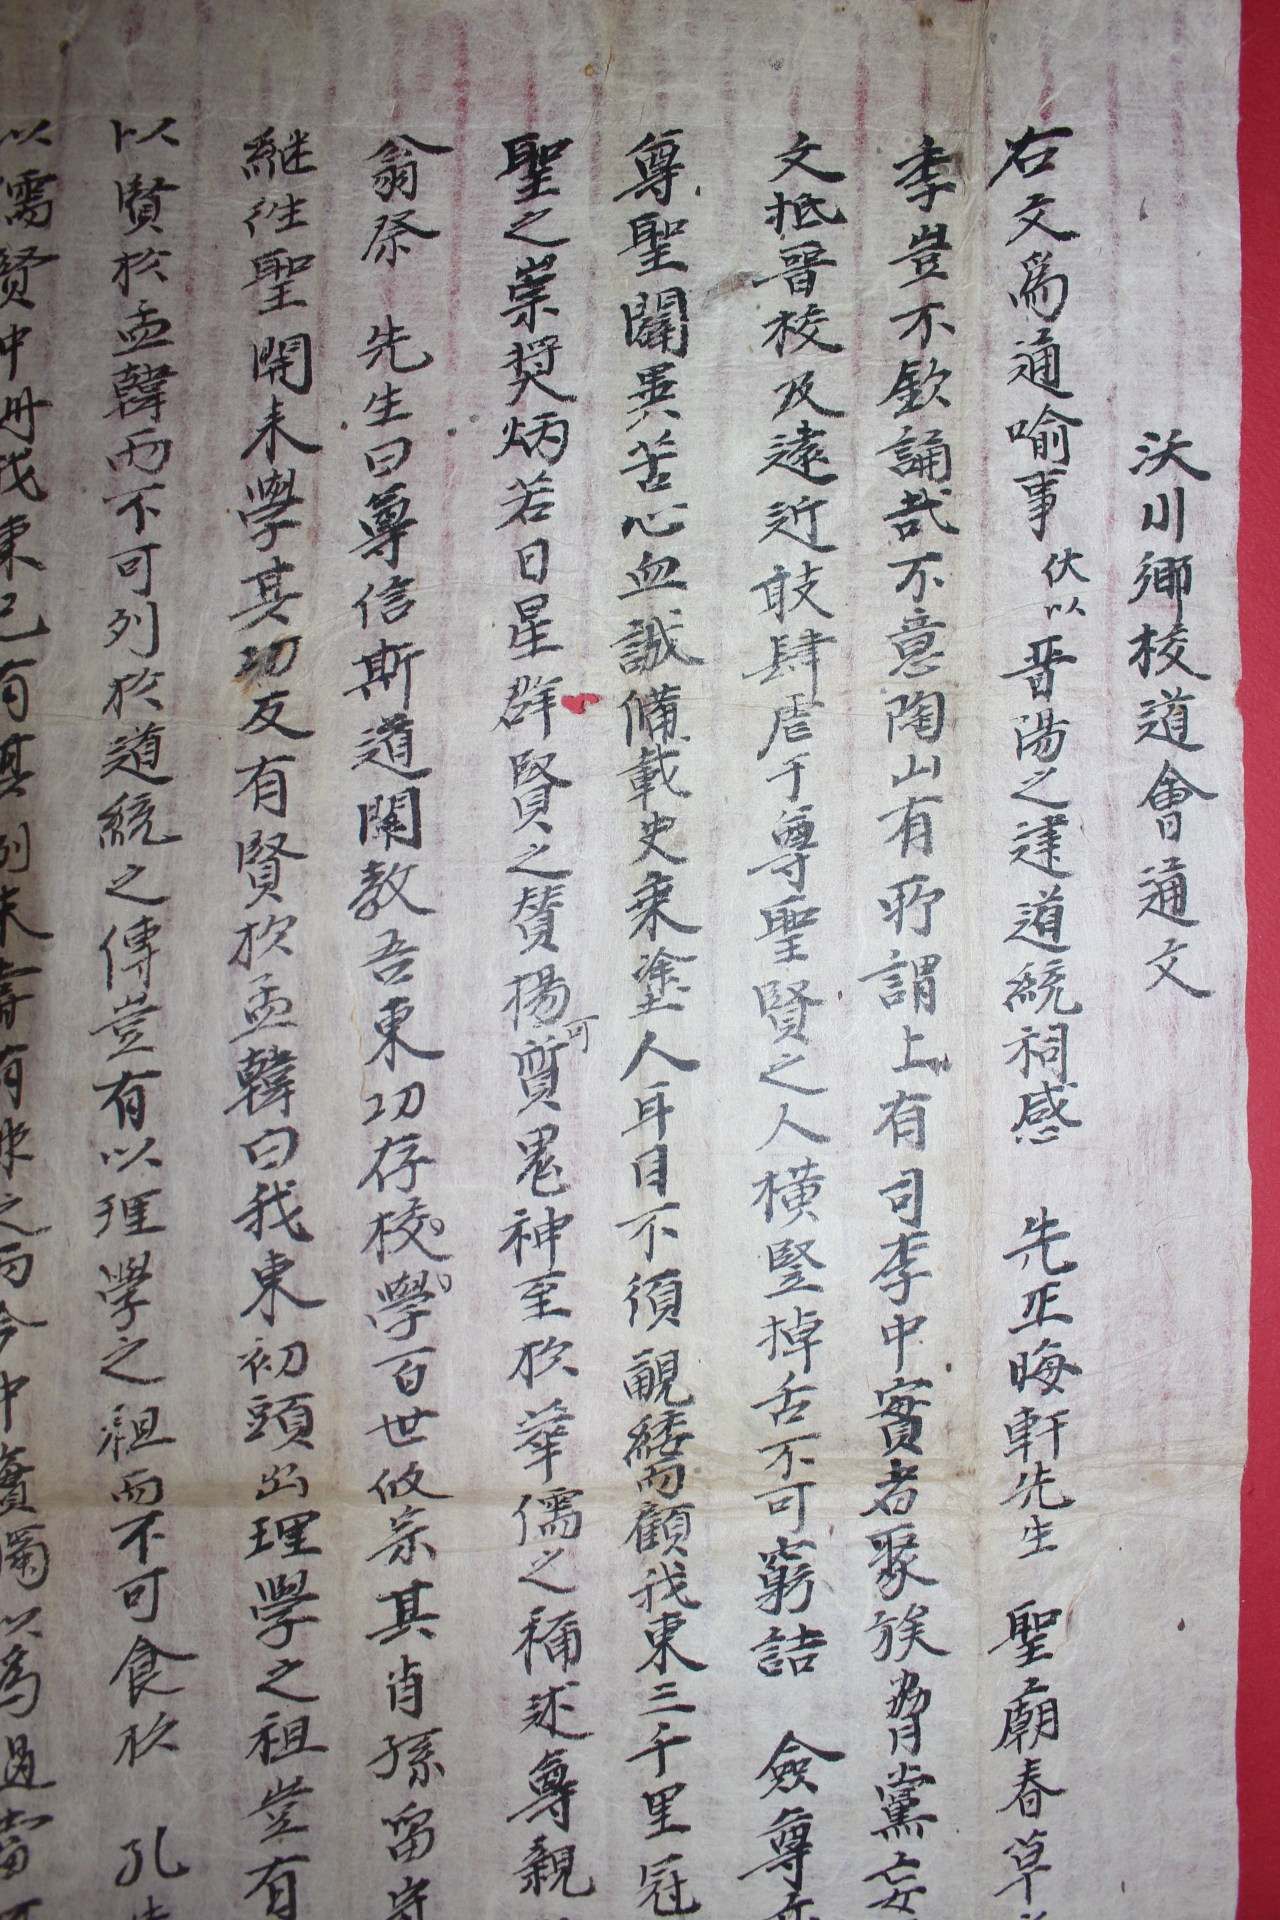 沃川鄕校道會通文
右文爲通喻事伏以晋陽之建道統祠感 先正晦軒先生 聖廟春草
李豈不欽誦哉不意陶山有所謂上有司李中實者聚族脅黨妄
文抵晋校及遠近敢肆虐于尊聖賢之人橫竪掉舌不可窮詰 僉尊
尊聖闢異苦心血誠備載史乘塗人耳目不須覼縷而顧我東三千里冠
聖之崇奬炳若日星群賢之贊揚可質鬼神至於華儒之稱述尊親
翁祭 先生曰尊信斯道闡敎吾東功存校學百世攸宗其肖孫留守
継往聖開来學其功反有賢於孟韓曰我東初頭出理學之祖豈有
以賢於孟韓而不可列於道統之傳豈有以理學之祖而不可食於 孔
以需賢中州我東已有其例未嘗有之而今中實獨以爲過當